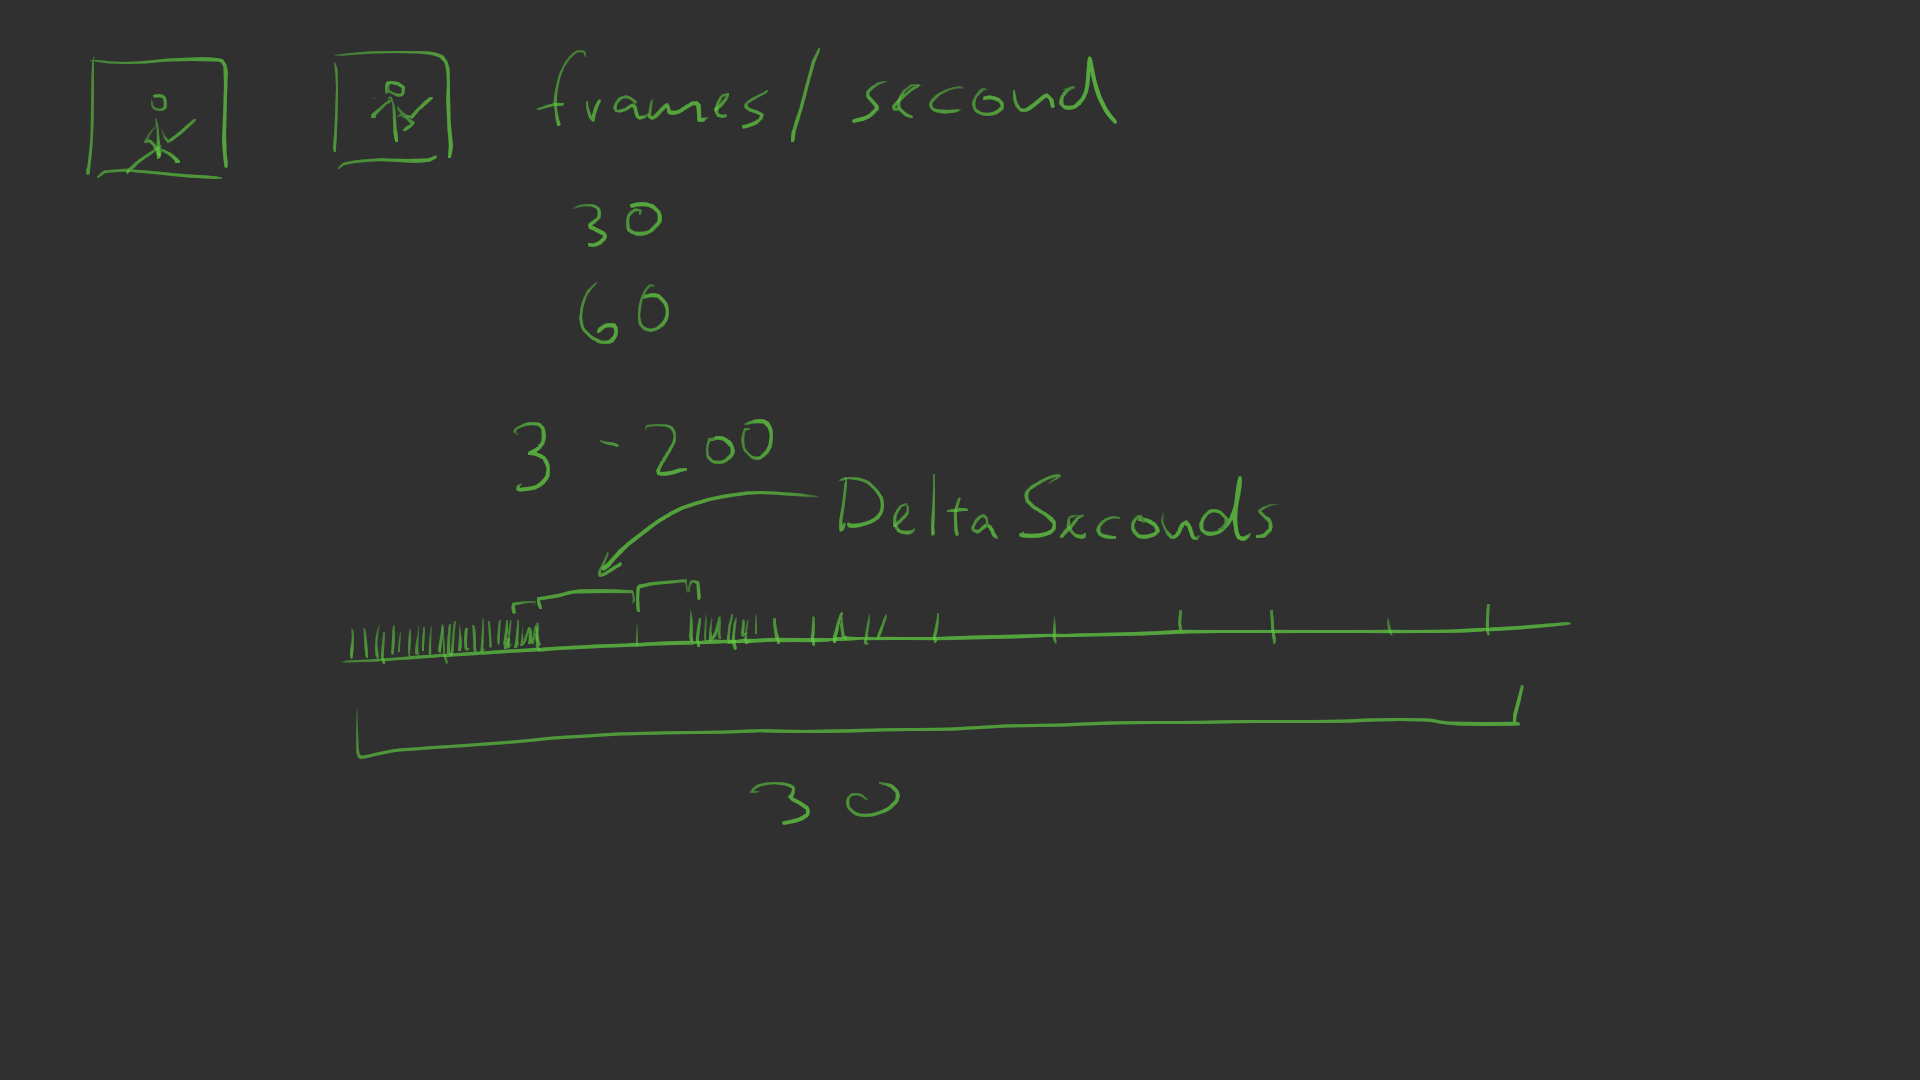 frames/second
30
60
3 - 200
Delta Seconds
30